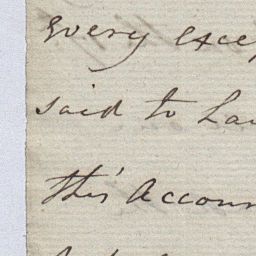 every excep
said to hav
this Accoun